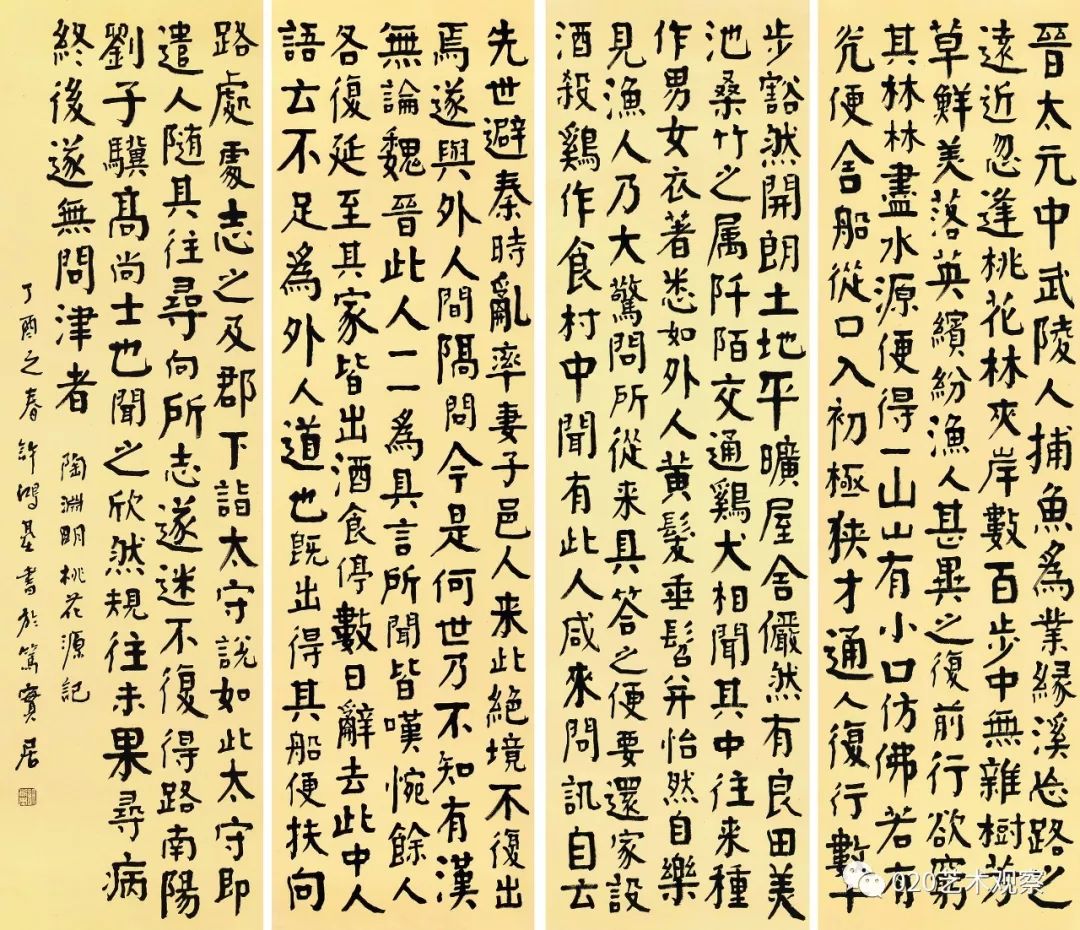 晉太元中武陵人捕魚為業緣溪忘路之
遠近忽逢桃花林夾岸數百步中無雜樹芳
草鮮美落英繽紛漁人甚異之復前行欲窮
其林林盡水源便得一山山有小口仿佛若有
光便舍船從口入初極狹才通人復行數十
步豁然開朗土地平曠屋舍儼然有良田美
池桑竹之属阡陌交通鷄犬相聞其中往来種
作男女衣著悉如外人黄髮垂髫并怡然自樂
見漁人乃大驚問所從来具答之便要還家設
酒殺鷄作食村中聞有此人咸來問訊自云
先世避秦時亂率妻子邑人来此絕境不復出
焉遂與外人間隔問今是何世乃不知有漢
無論魏晉此人一一為具言所聞皆嘆惋餘人
各復延至其家皆出酒食停數日辭去此中人
語云不足為外人道也既出得其船便扶向
路處處志之及郡下詣太守說如此太守即
遣人随其往尋向所志遂迷不復得路南陽
劉子驥高尚士也聞之欣然規往未果尋病
終後遂無問津者
陶淵明桃花源記
丁酉之春許鴻基書於篤實居
020艺术观察